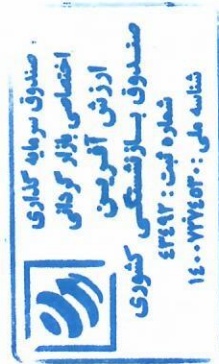 صندوق سرمایه گذاری
اختصاصی بازار گردانی
ارزش آفرین
صندوق بازنشستگی کشوری
شماره ثبت: ۴۳۴۹۲
شناسه ملی: ۱۴۰۰۷۷۷۴۵۳۰